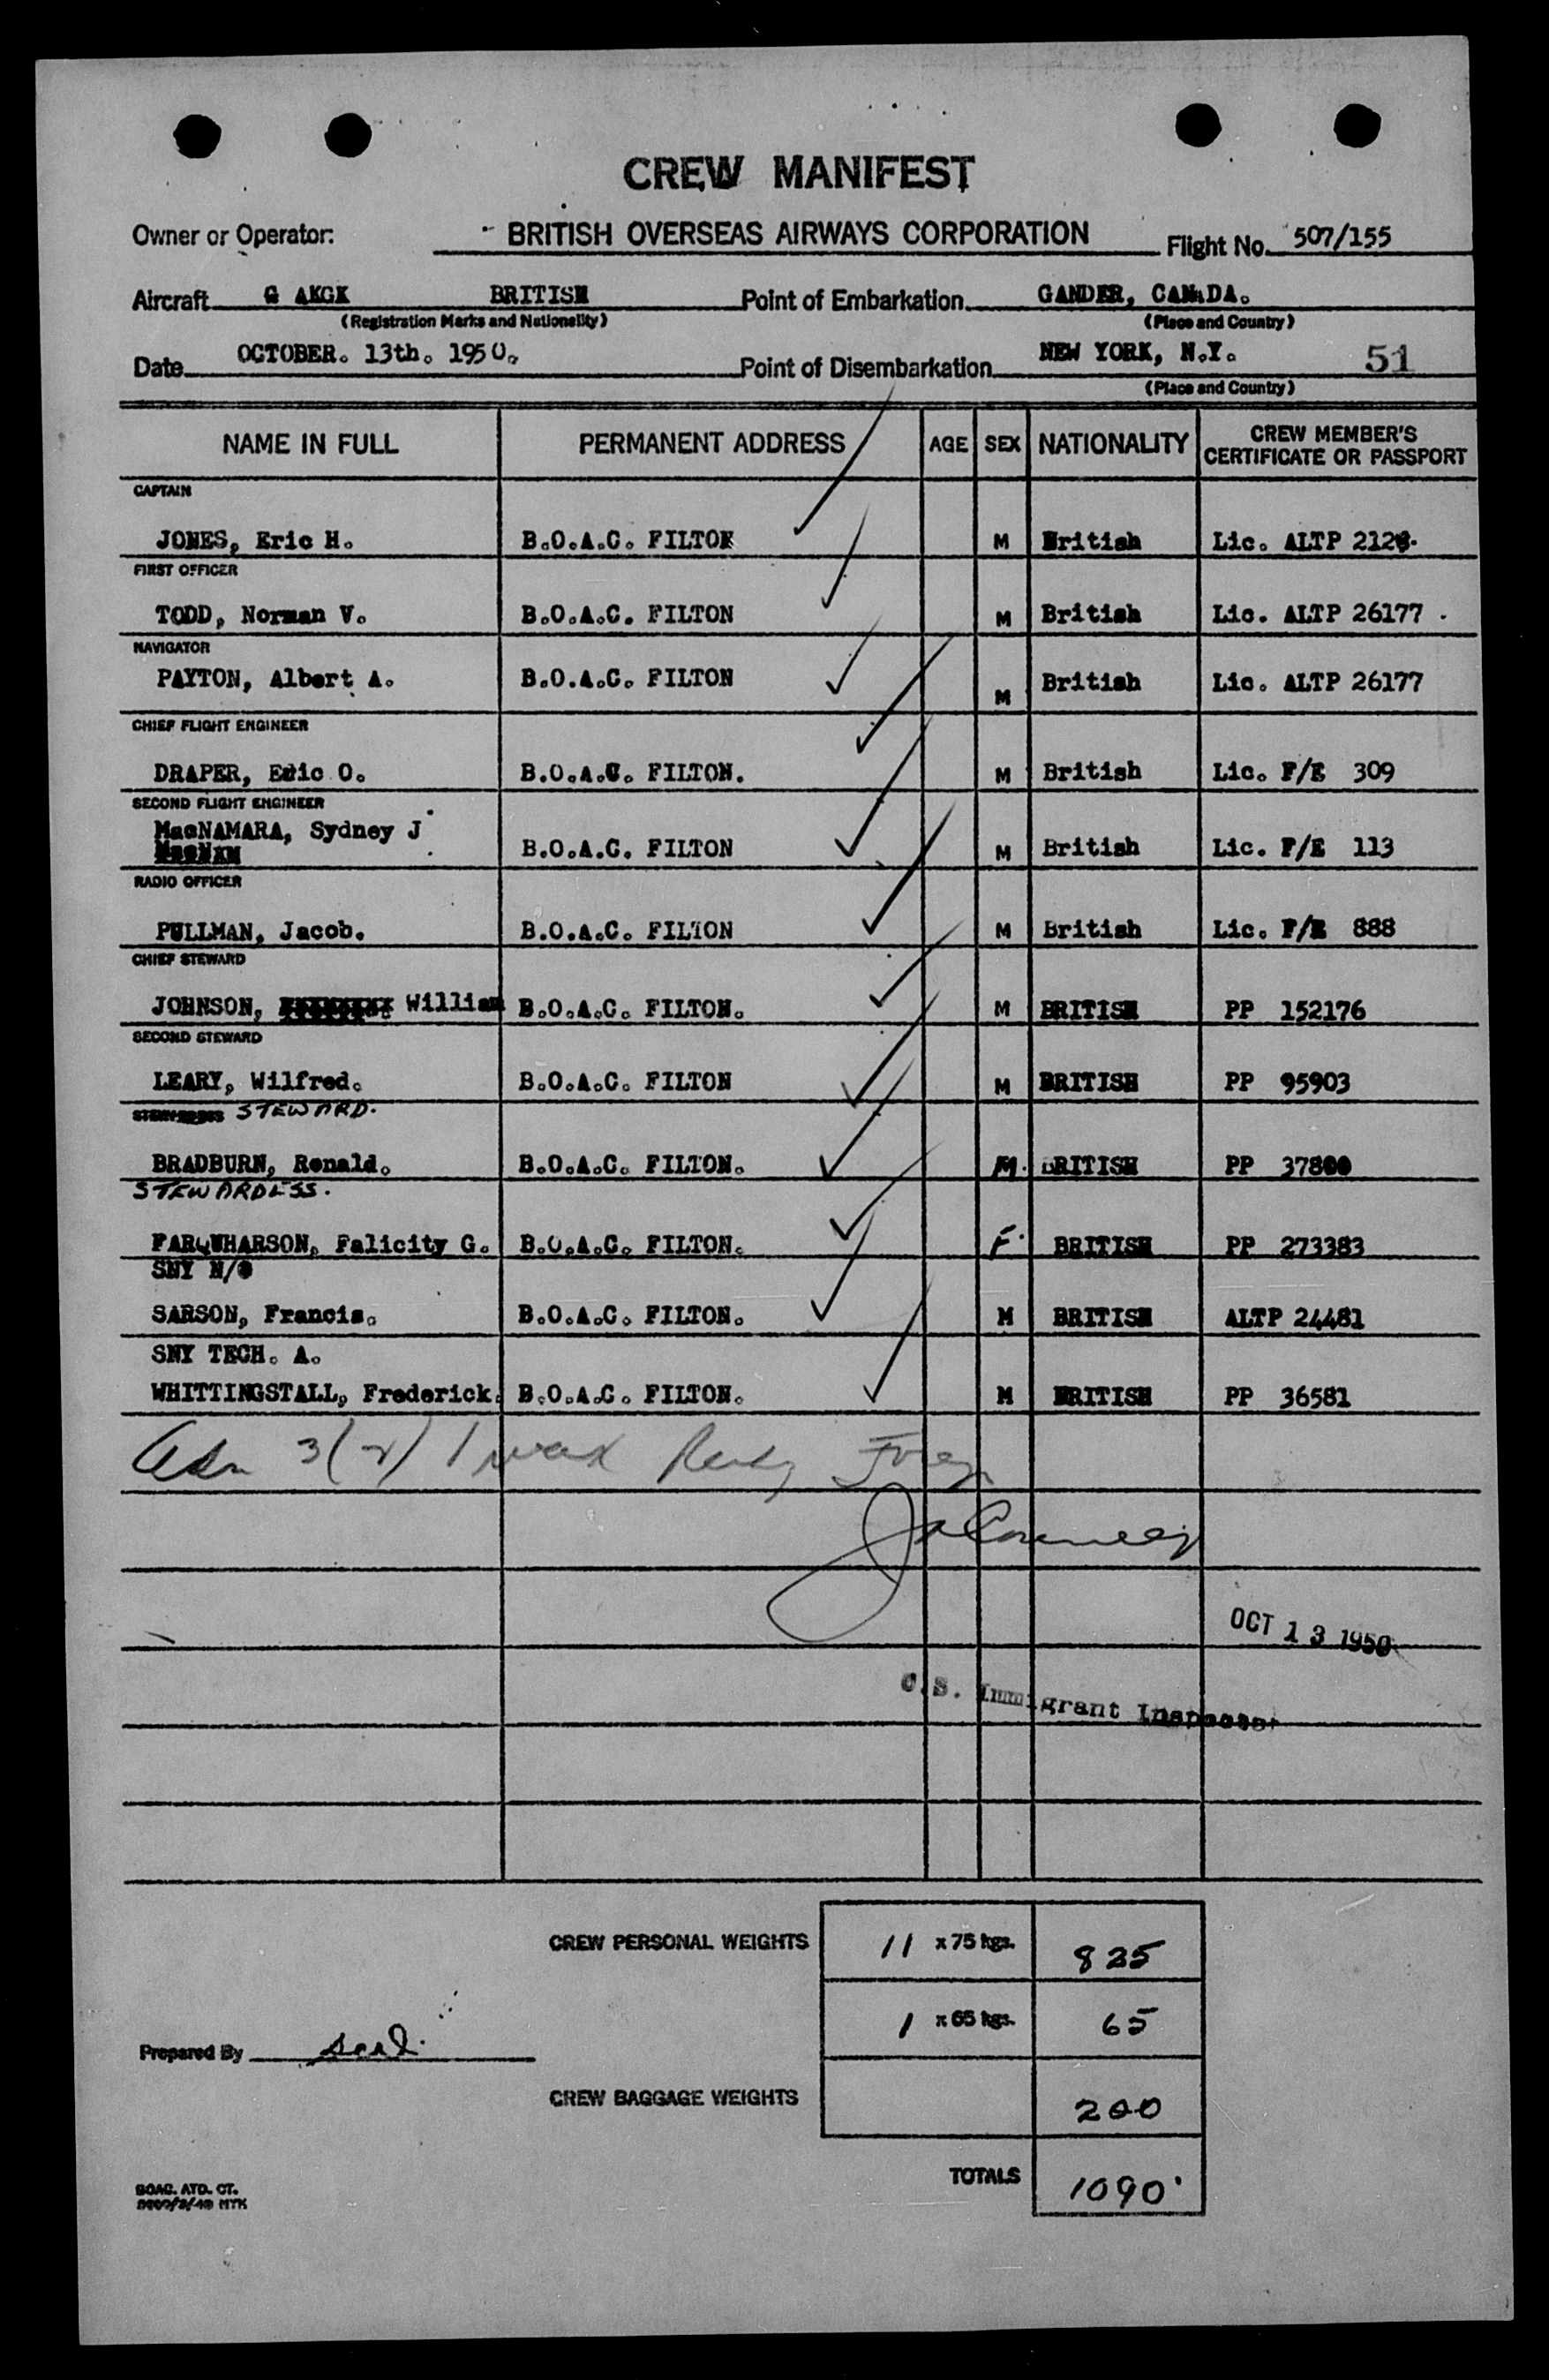 CREW MANIFEST
Owner or Operator: BRITISH OVERSEAS AIRWAYS CORPORATION Flight No. 507/155
Aircraft G AKGK BRITISH Point of Embarkation GANDER, CANADA.
(Registration Marks and Nationality) (Place and Country)
Date OCTOBER. 13th. 1950. Point of Disembarkation NEW YORK, N.Y. 51
(Place and Country)
NAME IN FULL PERMANENT ADDRESS AGE SEX NATIONALITY CREW MEMBER'S CERTIFICATE OR PASSPORT
CAPTAIN
JONES, Eric H. B.O.A.C. FILTON M British Lic. ALTP
FIRST OFFICER
TODD, Norman V. B.O.A.C. FILTON M British Lic. ALTP 26177
NAVIGATOR
PAYTON, Albert A. B.O.A.C. FILTON M British Lic. ALTP 26177
CHIEF FLIGHT ENGINEER
DRAPER, Eric O. B.O.A.C. FILTON. M British Lic. F/E 309
SECOND FLIGHT ENGINEER
MacNAMARA, Sydney J
MacNAM B.O.A.C. FILTON M British Lic. F/E 113
RADIO OFFICER
PULLMAN, Jacob. B.O.A.C. FILTON M British Lic. F/E 888
CHIEF STEWARD
JOHNSON, William B.O.A.C. FILTON. M BRITISH PP 152176
SECOND STEWARD
LEARY, Wilfred. B.O.A.C. FILTON M BRITISH PP 95903
STEWARDESS STEWARD.
BRADBURN, Ronald. B.O.A.C. FILTON. M. BRITISH PP 37800
STEWARDESS.
FARQUHARSON, Falicity G. B.O.A.C. FILTON. F. BRITISH PP 273383
SNY N/O
SARSON, Francis. B.O.A.C. FILTON. M BRITISH ALTP 24481
SNY TECH. A.
WHITTINGSTALL, Frederick. B.O.A.C. FILTON. M BRITISH PP 36581
Adm 3(2)
OCT 13 1950
U.S. Immigrant Inspector
CREW PERSONAL WEIGHTS 11 x 75 kgs. 825
1 x 65 kgs. 65
Prepared By
CREW BAGGAGE WEIGHTS 200
TOTALS 1090
BOAC. ATD. CT.